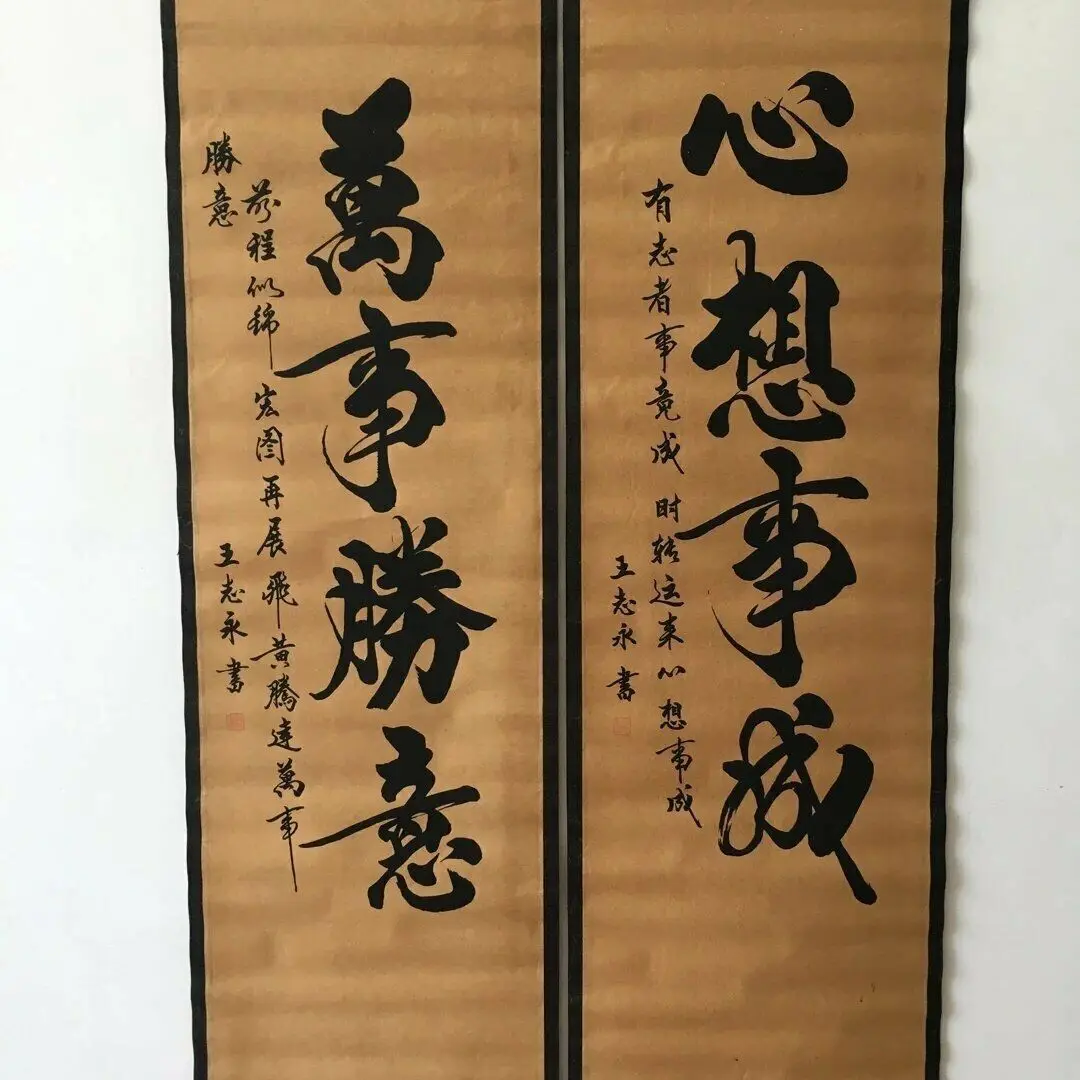 心想事成
有志者事竟成 时转运来心想事成
王志永書
萬事勝意
前程似锦 宏图再展 飛黄騰達萬事
勝意
王志永書